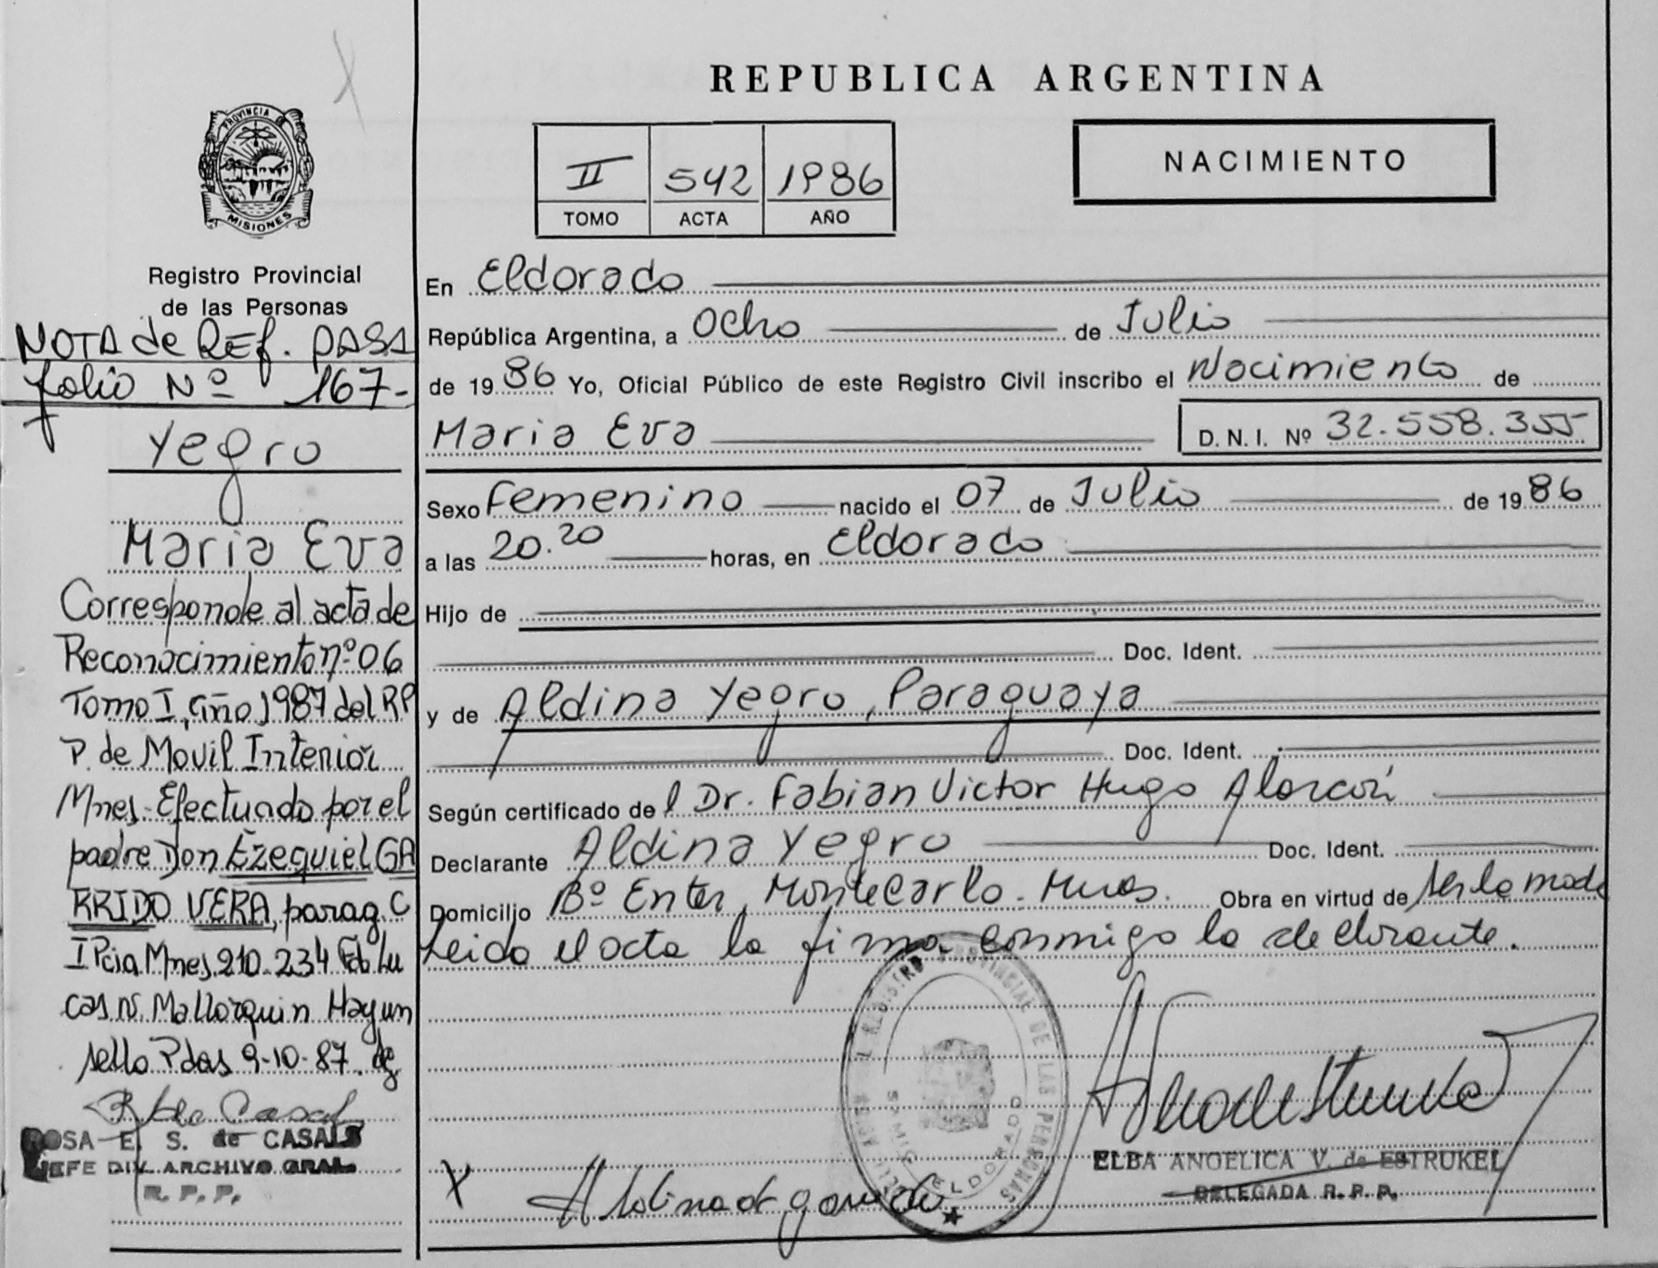 REPUBLICA ARGENTINA
PROVINCIA DE
MISIONES
II 542 1986
TOMO ACTA AÑO
NACIMIENTO
Registro Provincial
de las Personas
NOTA de REf. PASA
folio Nº 167-
Yegro
Maria Eva
Corresponde al acta de
Reconocimiento nº 06
Tomo I, año 1987 del RP
P. de Movil Interior
Mnes. Efectuado por el
padre Don Ezequiel GA
RRIDO VERA, parag. C
I Pcia Mnes 210.234 Fdo Lu
cas N. Mallorquin Hay un
sello Pdas 9-10-87.
ROSA E. S. de CASALS
JEFE DIV. ARCHIVO GRAL.
R. P. P.
En Eldorado
República Argentina, a Ocho de Julio
de 1986 Yo, Oficial Público de este Registro Civil inscribo el Nacimiento de
Maria Eva D. N. I. Nº 32.558.355
Sexo Femenino nacido el 07 de Julio de 1986
a las 20.20 horas, en Eldorado
Hijo de
Doc. Ident.
y de Aldina Yegro, Paraguaya
Doc. Ident.
Según certificado del Dr. Fabian Victor Hugo Alarcón
Declarante Aldina Yegro Doc. Ident.
Domicilio Bº Enter, Montecarlo - Mnes. Obra en virtud de ser la madre
Leida el acta la firma conmigo la declarante.
REGISTRO PROVINCIAL DE LAS PERSONAS
ELDORADO
X
ELBA ANGELICA V. de ESTRUKEL
DELEGADA R. P. P.